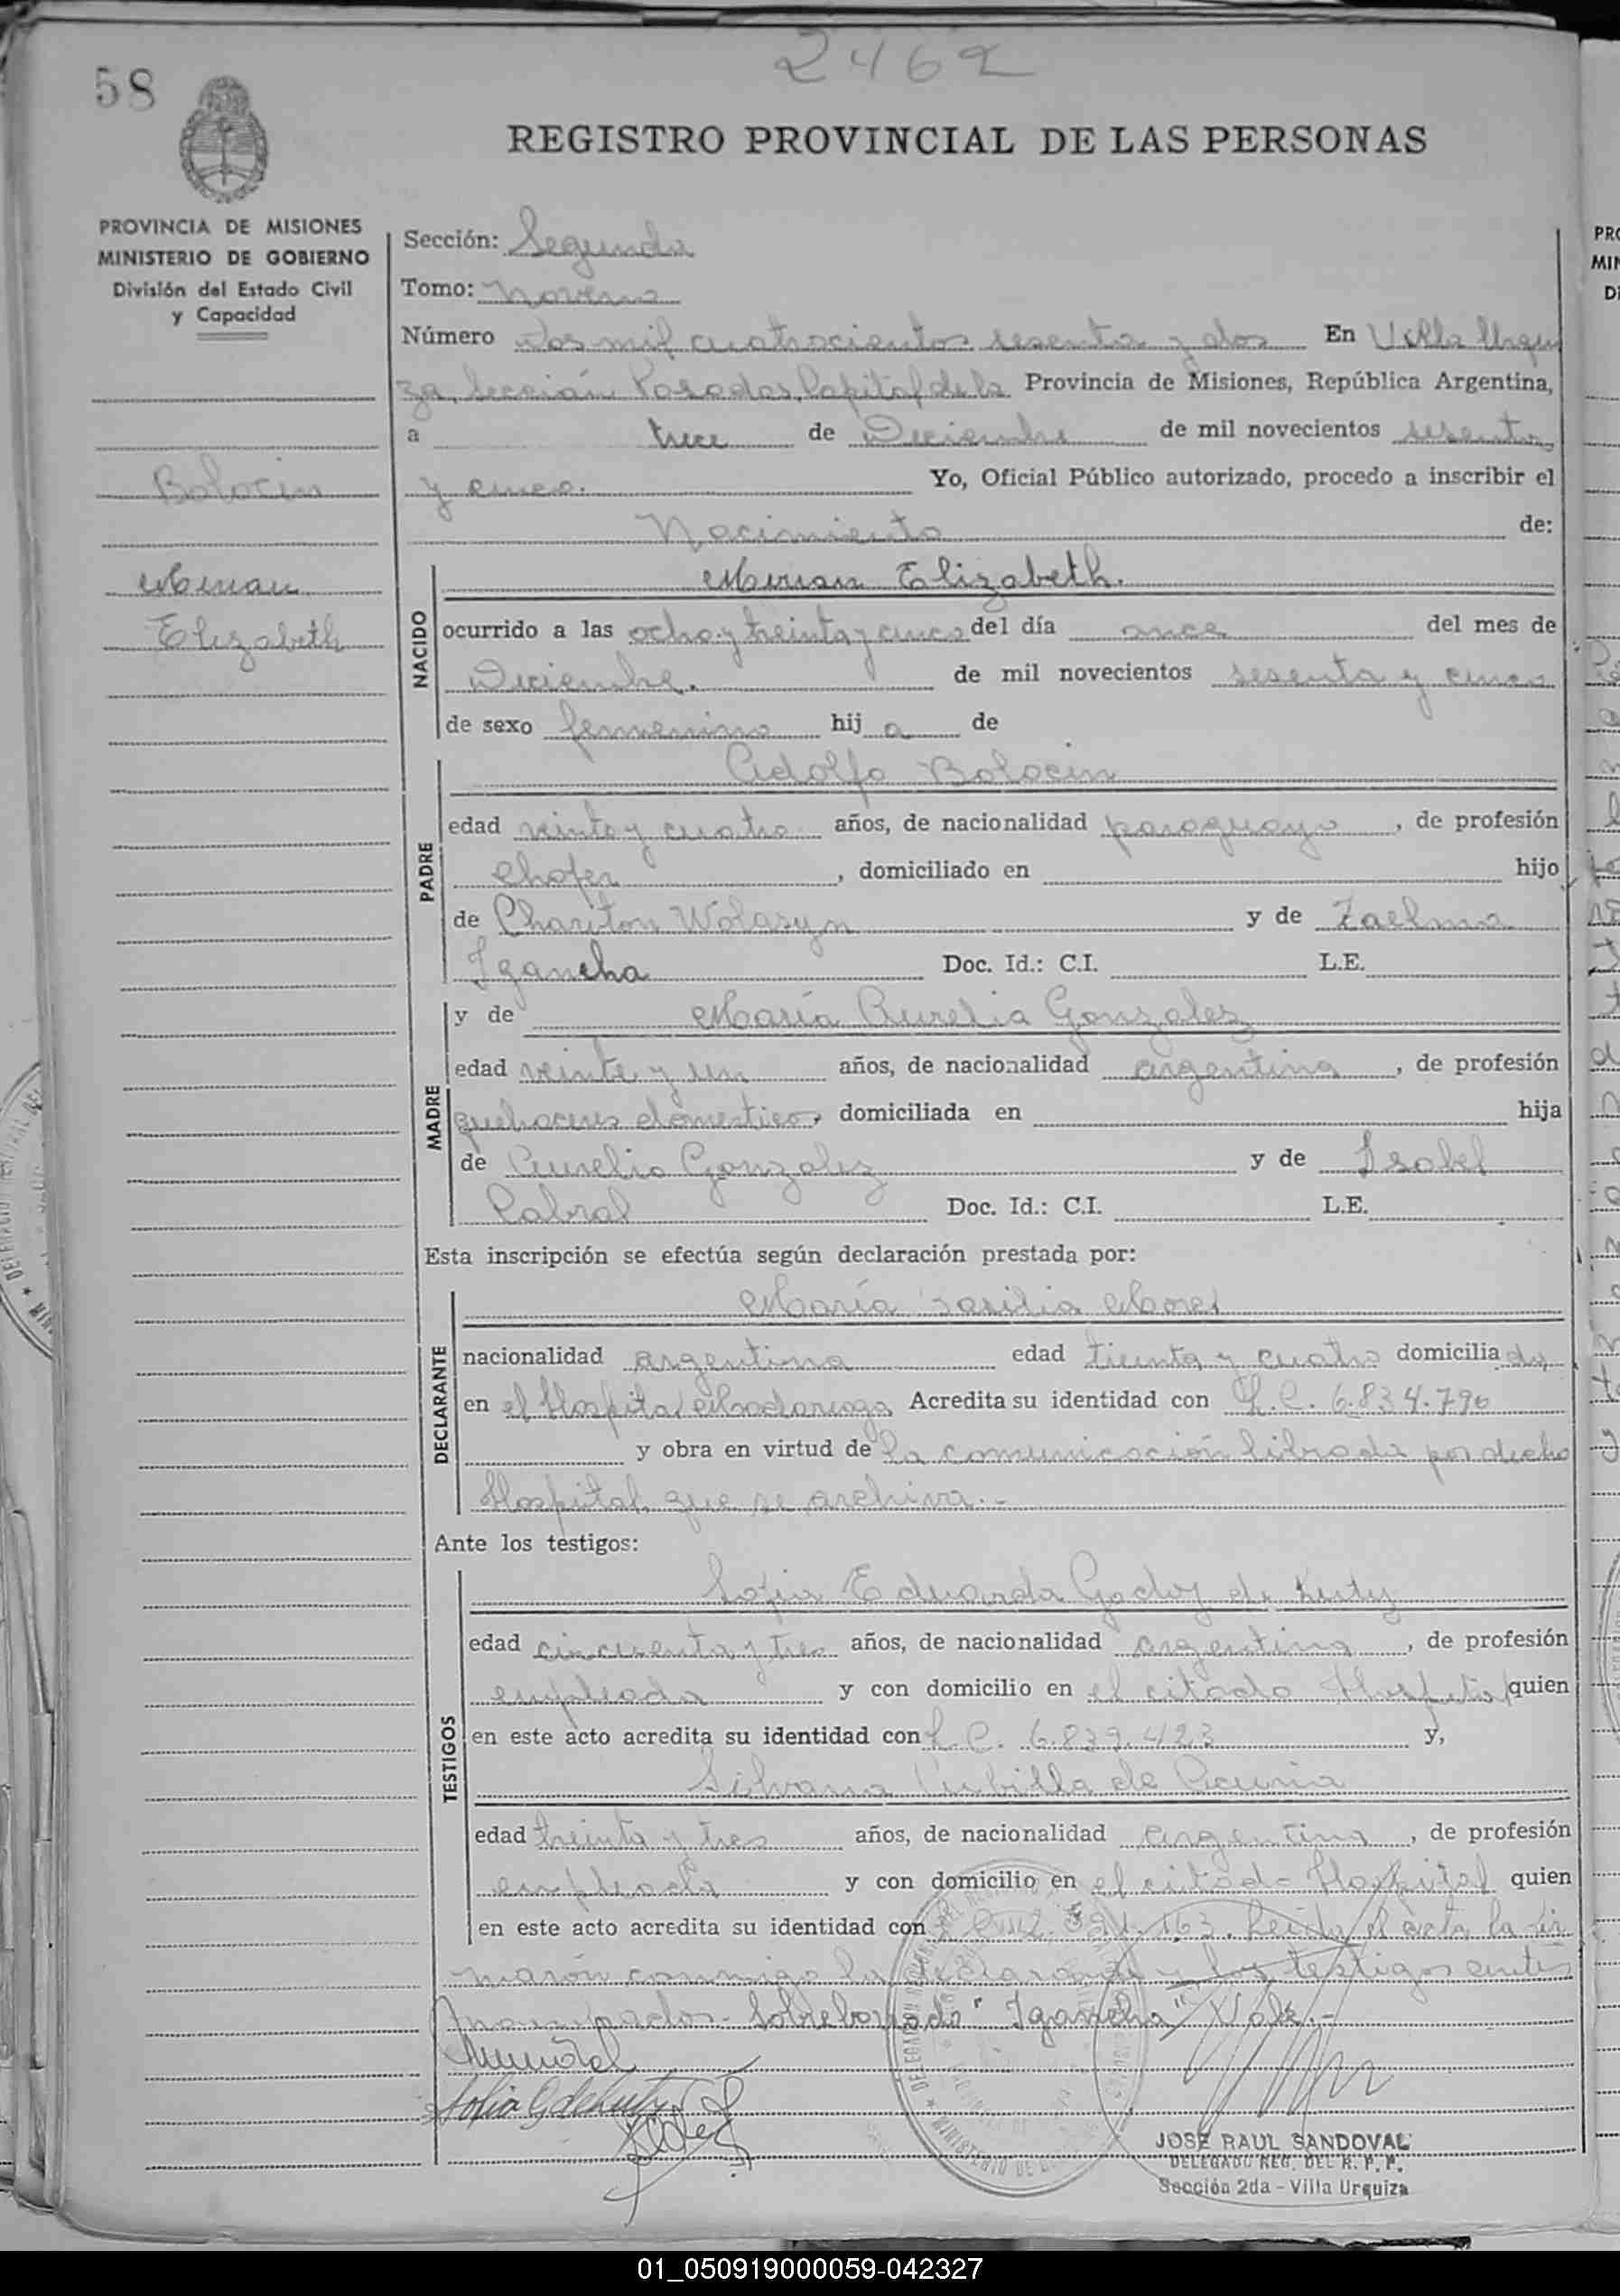 58
2462
REGISTRO PROVINCIAL DE LAS PERSONAS
PROVINCIA DE MISIONES
MINISTERIO DE GOBIERNO
División del Estado Civil
y Capacidad
Bolocin
Mirian
Elizabeth
Sección: Segunda
Tomo: Noveno
Número dos mil cuatrocientos sesenta y dos En Villa Urqui
za, Sección Posadas, Capital de la Provincia de Misiones, República Argentina,
a trece de Diciembre de mil novecientos sesenta
y cinco. Yo, Oficial Público autorizado, procedo a inscribir el
Nacimiento de:
NACIDO
Mirian Elizabeth.
ocurrido a las ocho y treinta y cinco del día once del mes de
Diciembre. de mil novecientos sesenta y cinco
de sexo femenino hij a de
PADRE
Adolfo Bolocin
edad veinte y cuatro años, de nacionalidad paraguayo, de profesión
Chofer, domiciliado en hijo
de Chariton Wolasyn y de Zaelma
Igancha Doc. Id.: C.I. L.E.
MADRE
y de María Aurelia Gonzalez
edad veinte y un años, de nacionalidad argentina, de profesión
quehaceres domestico, domiciliada en hija
de Aurelio Gonzalez y de Isabel
Cabral Doc. Id.: C.I. L.E.
Esta inscripción se efectúa según declaración prestada por:
DECLARANTE
María
nacionalidad argentina edad treinta y cuatro domicilia da
en el Hospital Madariaga Acredita su identidad con L.C. 6.834.790
y obra en virtud de la comunicación librada por dicho
Hospital, que se archiva.-
Ante los testigos:
TESTIGOS
Sofia Eduarda Godoy de Kuty
edad cincuenta y tres años, de nacionalidad argentina, de profesión
empleada y con domicilio en el citado Hospital quien
en este acto acredita su identidad con L.C. 6.839.423 y,
Silvana de Acuña
edad treinta y tres años, de nacionalidad argentina, de profesión
empleada y con domicilio en el citado Hospital quien
en este acto acredita su identidad con Leida el acta la fir
maron conmigo la declarante y los testigos antes
mencionados.- Sobreborrado "Igancha" Vale.-
JOSE RAUL SANDOVAL
DELEGADO REG. DEL R. P. P.
Sección 2da - Villa Urquiza
01_050919000059-042327